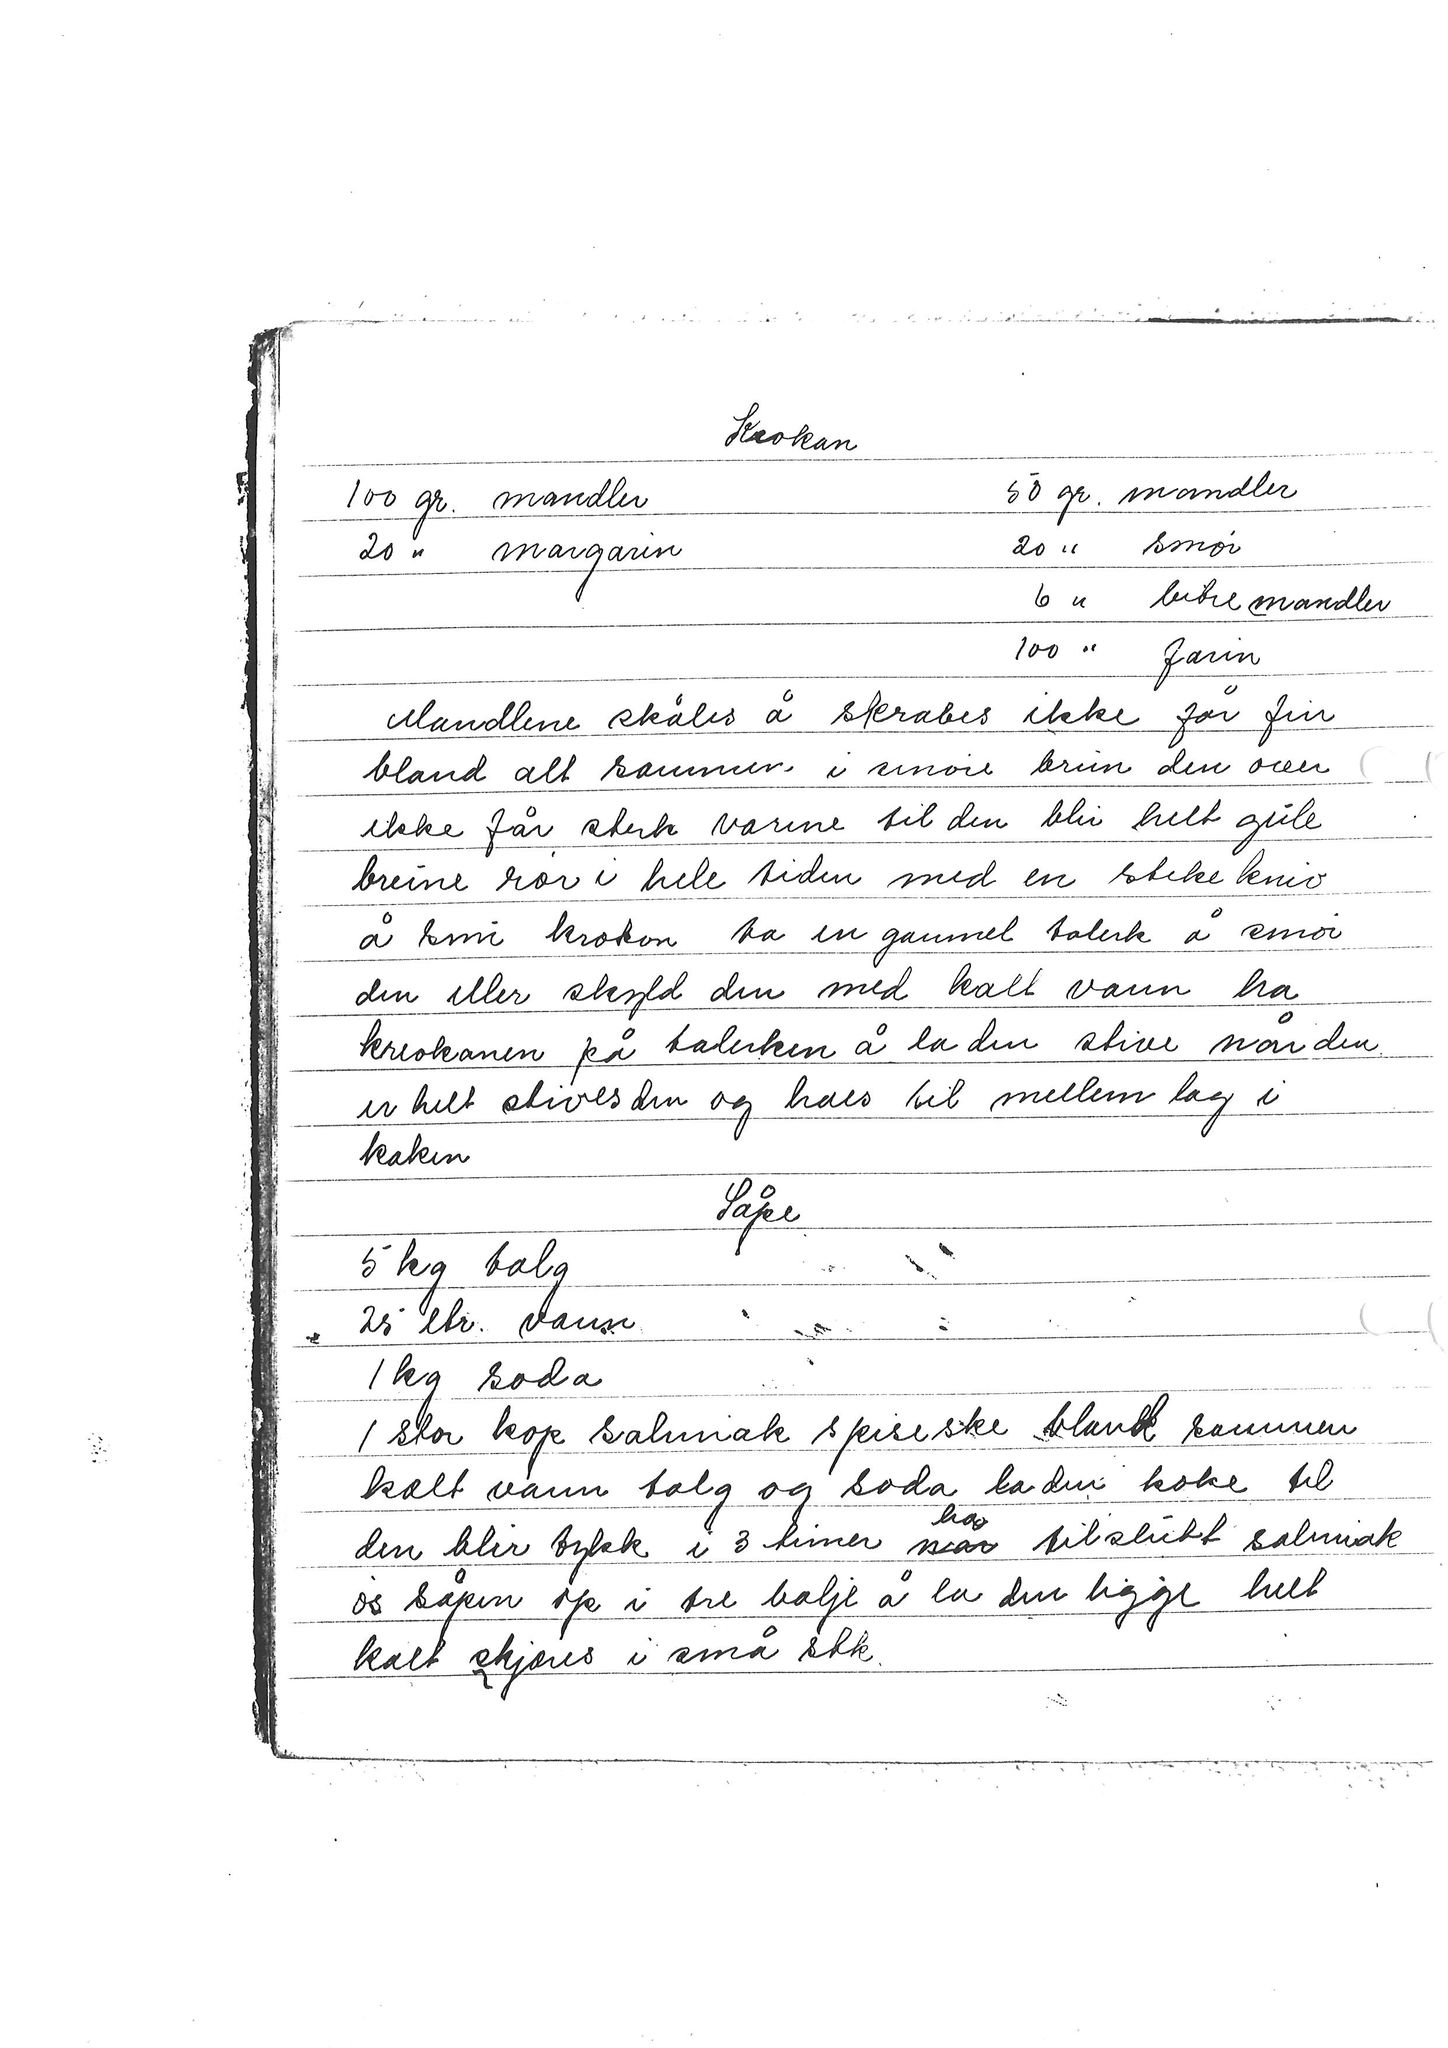 Krokan
100 gr. mandler 50 gr. mandler
20 " margarin 20 " smør
6 " bitre mandler
100 " farin
Mandlene skåles å skrabes ikke får fin
bland alt sammen i smøre brun den over
ikke får sterk varme til den blir helt gule
breine rør i hele tiden med en steke kniv
å smi krokon ta en gammel talerk å smør
den eller skyld den med kalt vann ha
kreokanen på talerken å la den stive når den
er helt stives den og haes til mellem lag i
kaken
Såpe
5 kg talg
25 ltr. vann
1 kg soda
1 stor kop salmiak spiseske bland sammen
kalt vann talg og soda la den koke til
den blir tykk i 3 timer ha tilslutt salmiak
øs såpen op i tre balje å la den ligge helt
kalt skjæres i små stk.